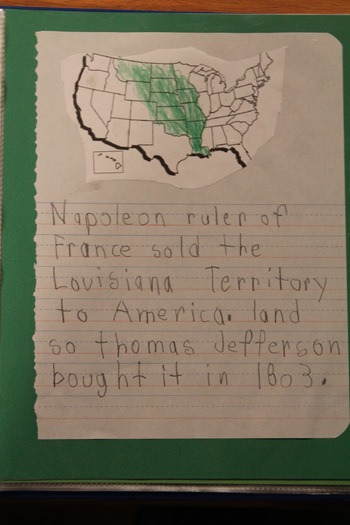 Napoleon ruler of
France sold the
Louisiana Territory
to America. land
so thomas Jefferson
bought it in 1803.